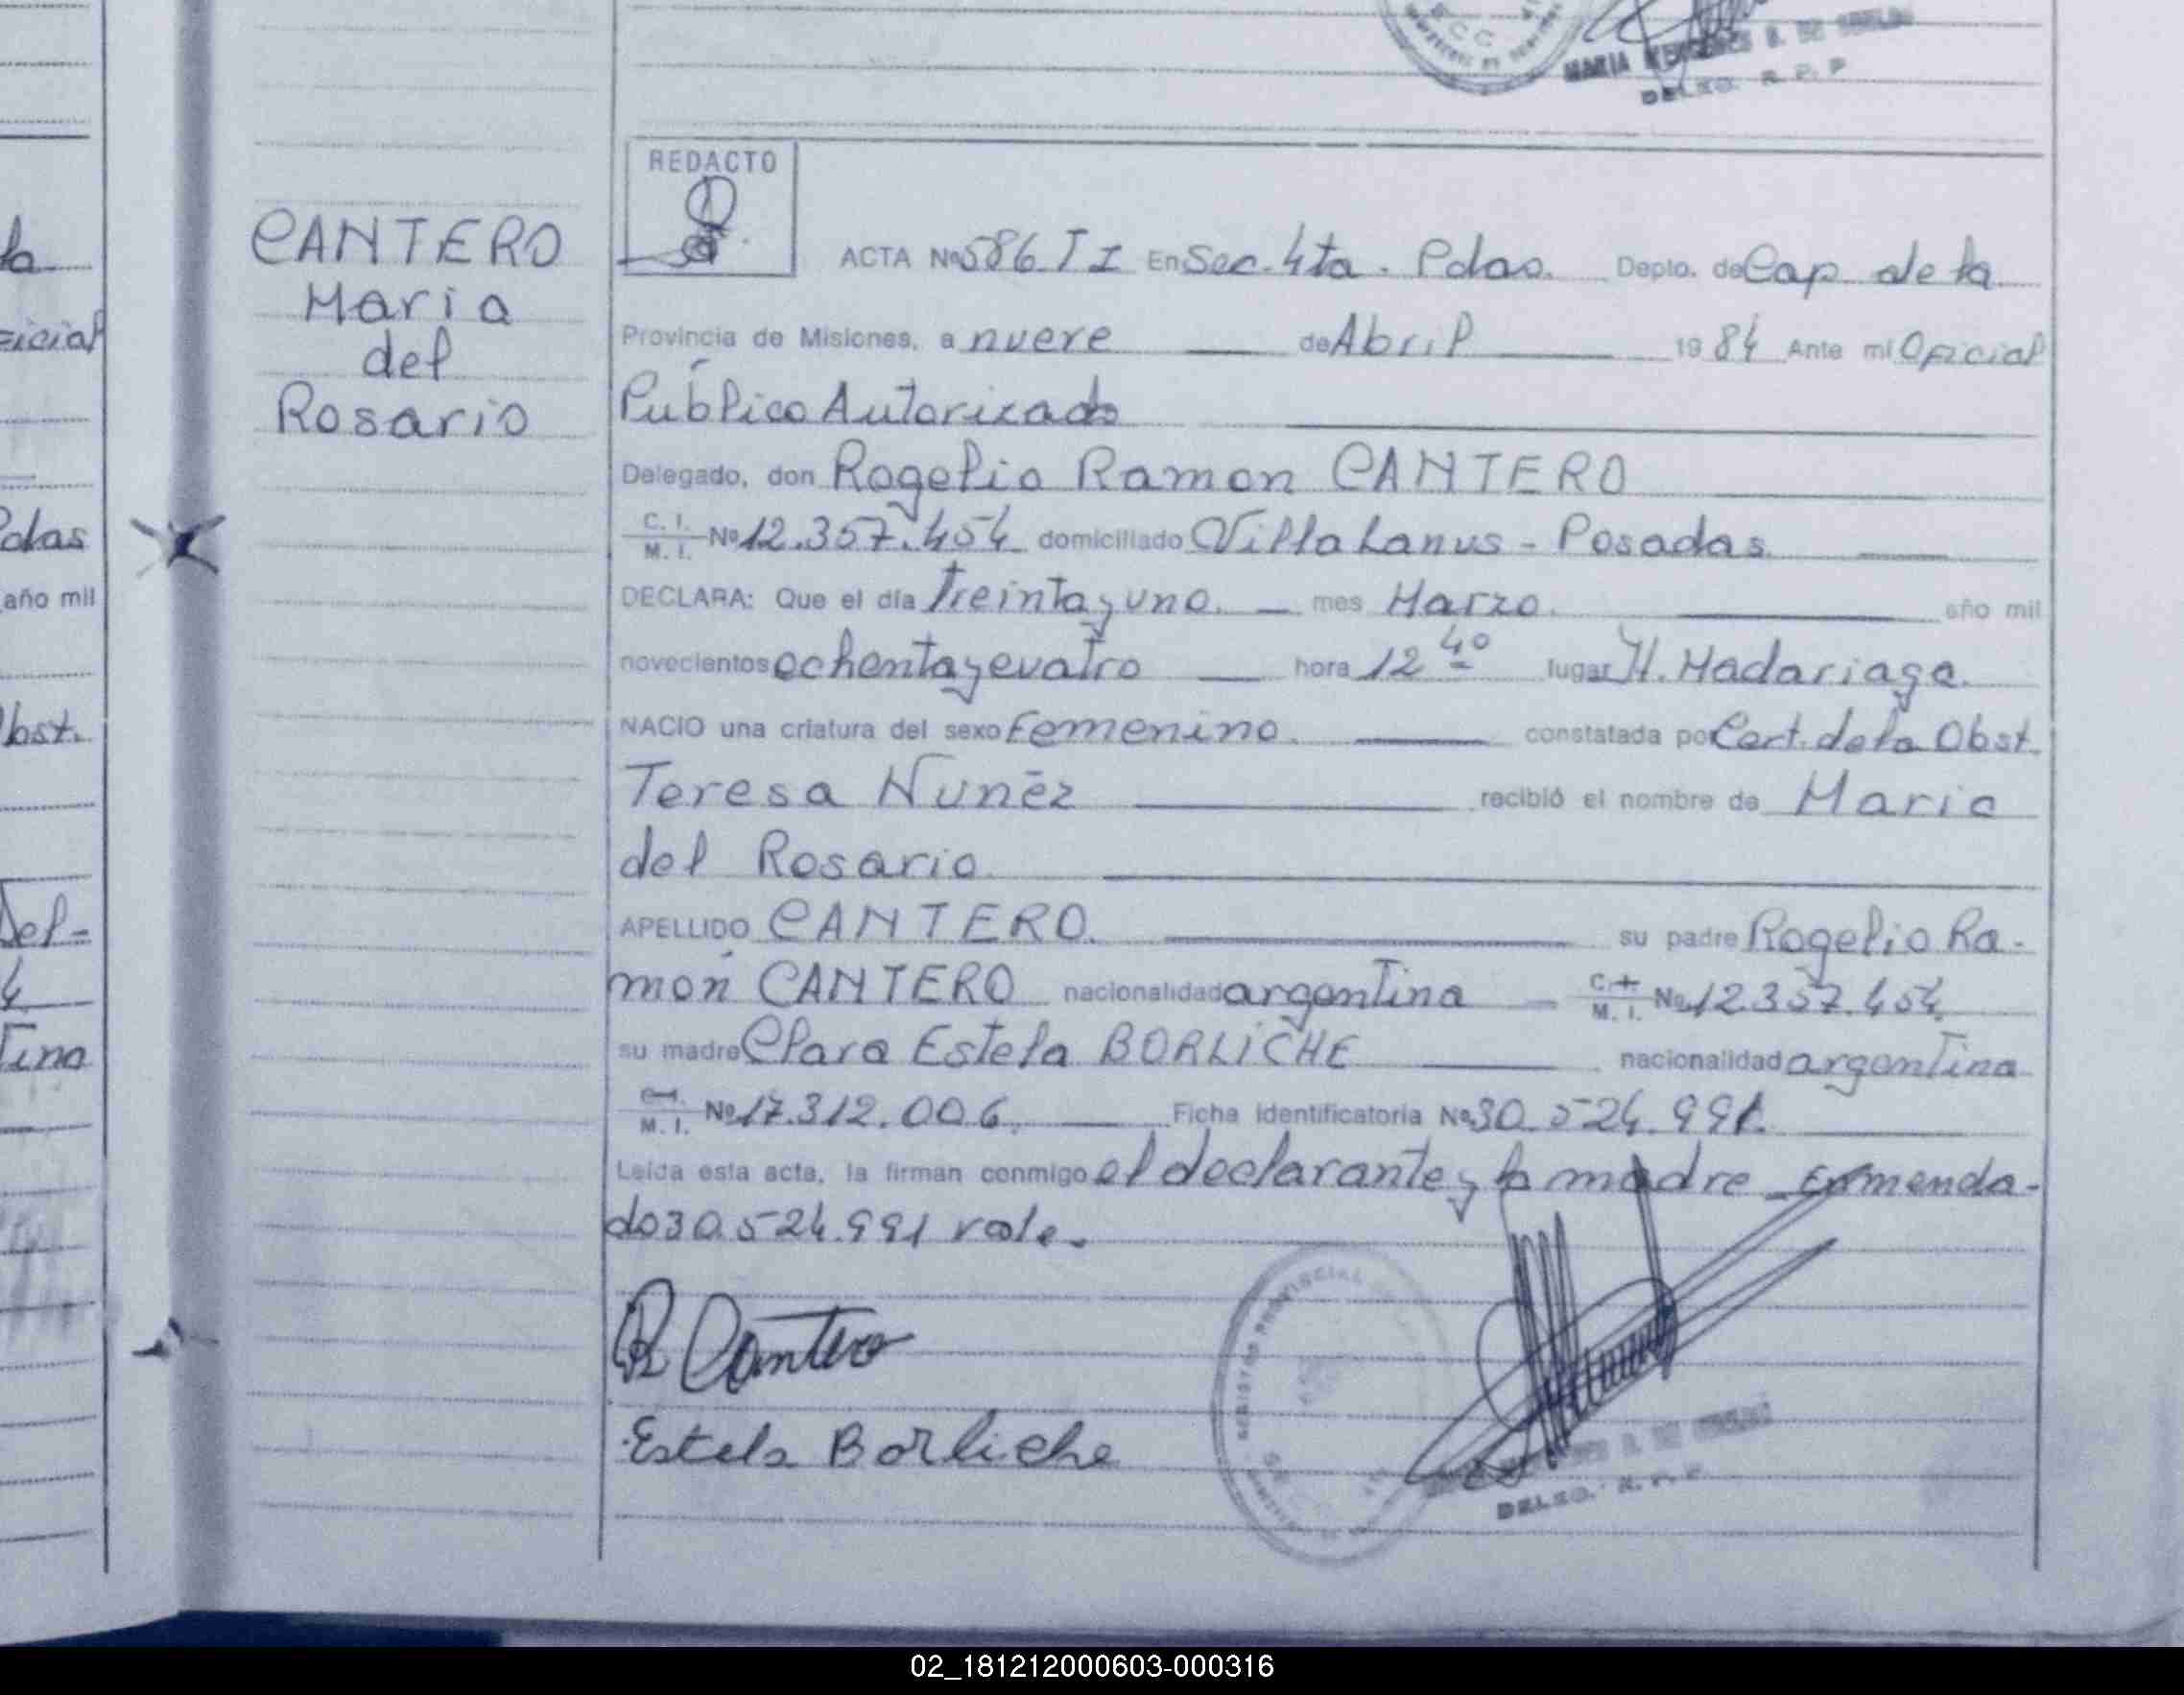 MARIA
DELEG. R. P. P
REDACTO
CANTERO
Maria
del
Rosario
ACTA Nº 586 T I En Sec. 4ta. Pdas. Depto. de Cap. de la
Provincia de Misiones, a nueve de Abril 1984 Ante mi Oficial
Público Autorizado
Delegado, don Rogelio Ramon CANTERO
C. I.
M. I. Nº 12.357.454 domiciliado Villa Lanus - Posadas
DECLARA: Que el día treinta y uno. mes Marzo. año mil
novecientos ochenta y cuatro hora 12 40 lugar H. Madariaga.
NACIO una criatura del sexo Femenino. constatada por Cert. de la Obst.
Teresa Nuñez recibió el nombre de Maria
del Rosario
APELLIDO CANTERO. su padre Rogelio Ra-
món CANTERO nacionalidad argentina C. I.
M. I. Nº 12.357.454
su madre Clara Estela BORLICHE nacionalidad argentina
C. I.
M. I. Nº 17.312.006. Ficha Identificatoria Nº 30.524.991.
Leída esta acta, la firman conmigo el declarante y la madre Enmenda-
do 30.524.991 vale.
R Cantero
Estela Borliche
REGISTRO PROVINCIAL
DELEG. R. P. P.
la
Oficial
Pdas
año mil
Obst.
Del-
4
tina
02_181212000603-000316